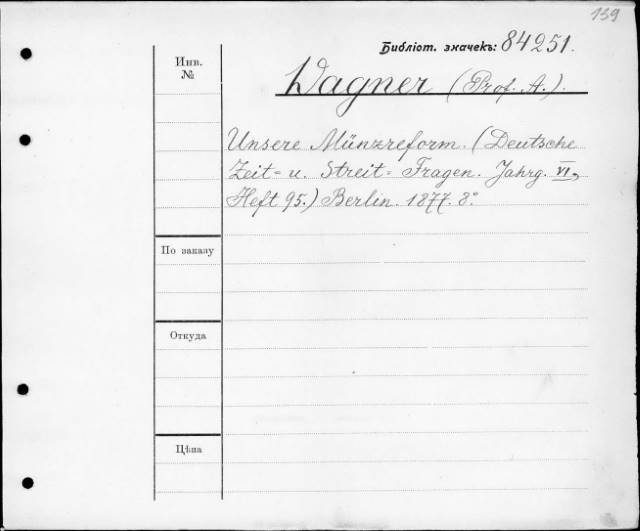 159
Библіот. значекъ: 84251.
Инв.
№
Wagner (Prof. A.).
Unsere Münzreform. (Deutsche
Zeit= u. Streit= Fragen. Jahrg. VI,
Heft 95.) Berlin. 1877. 8°
По заказу
Откуда
Цѣна